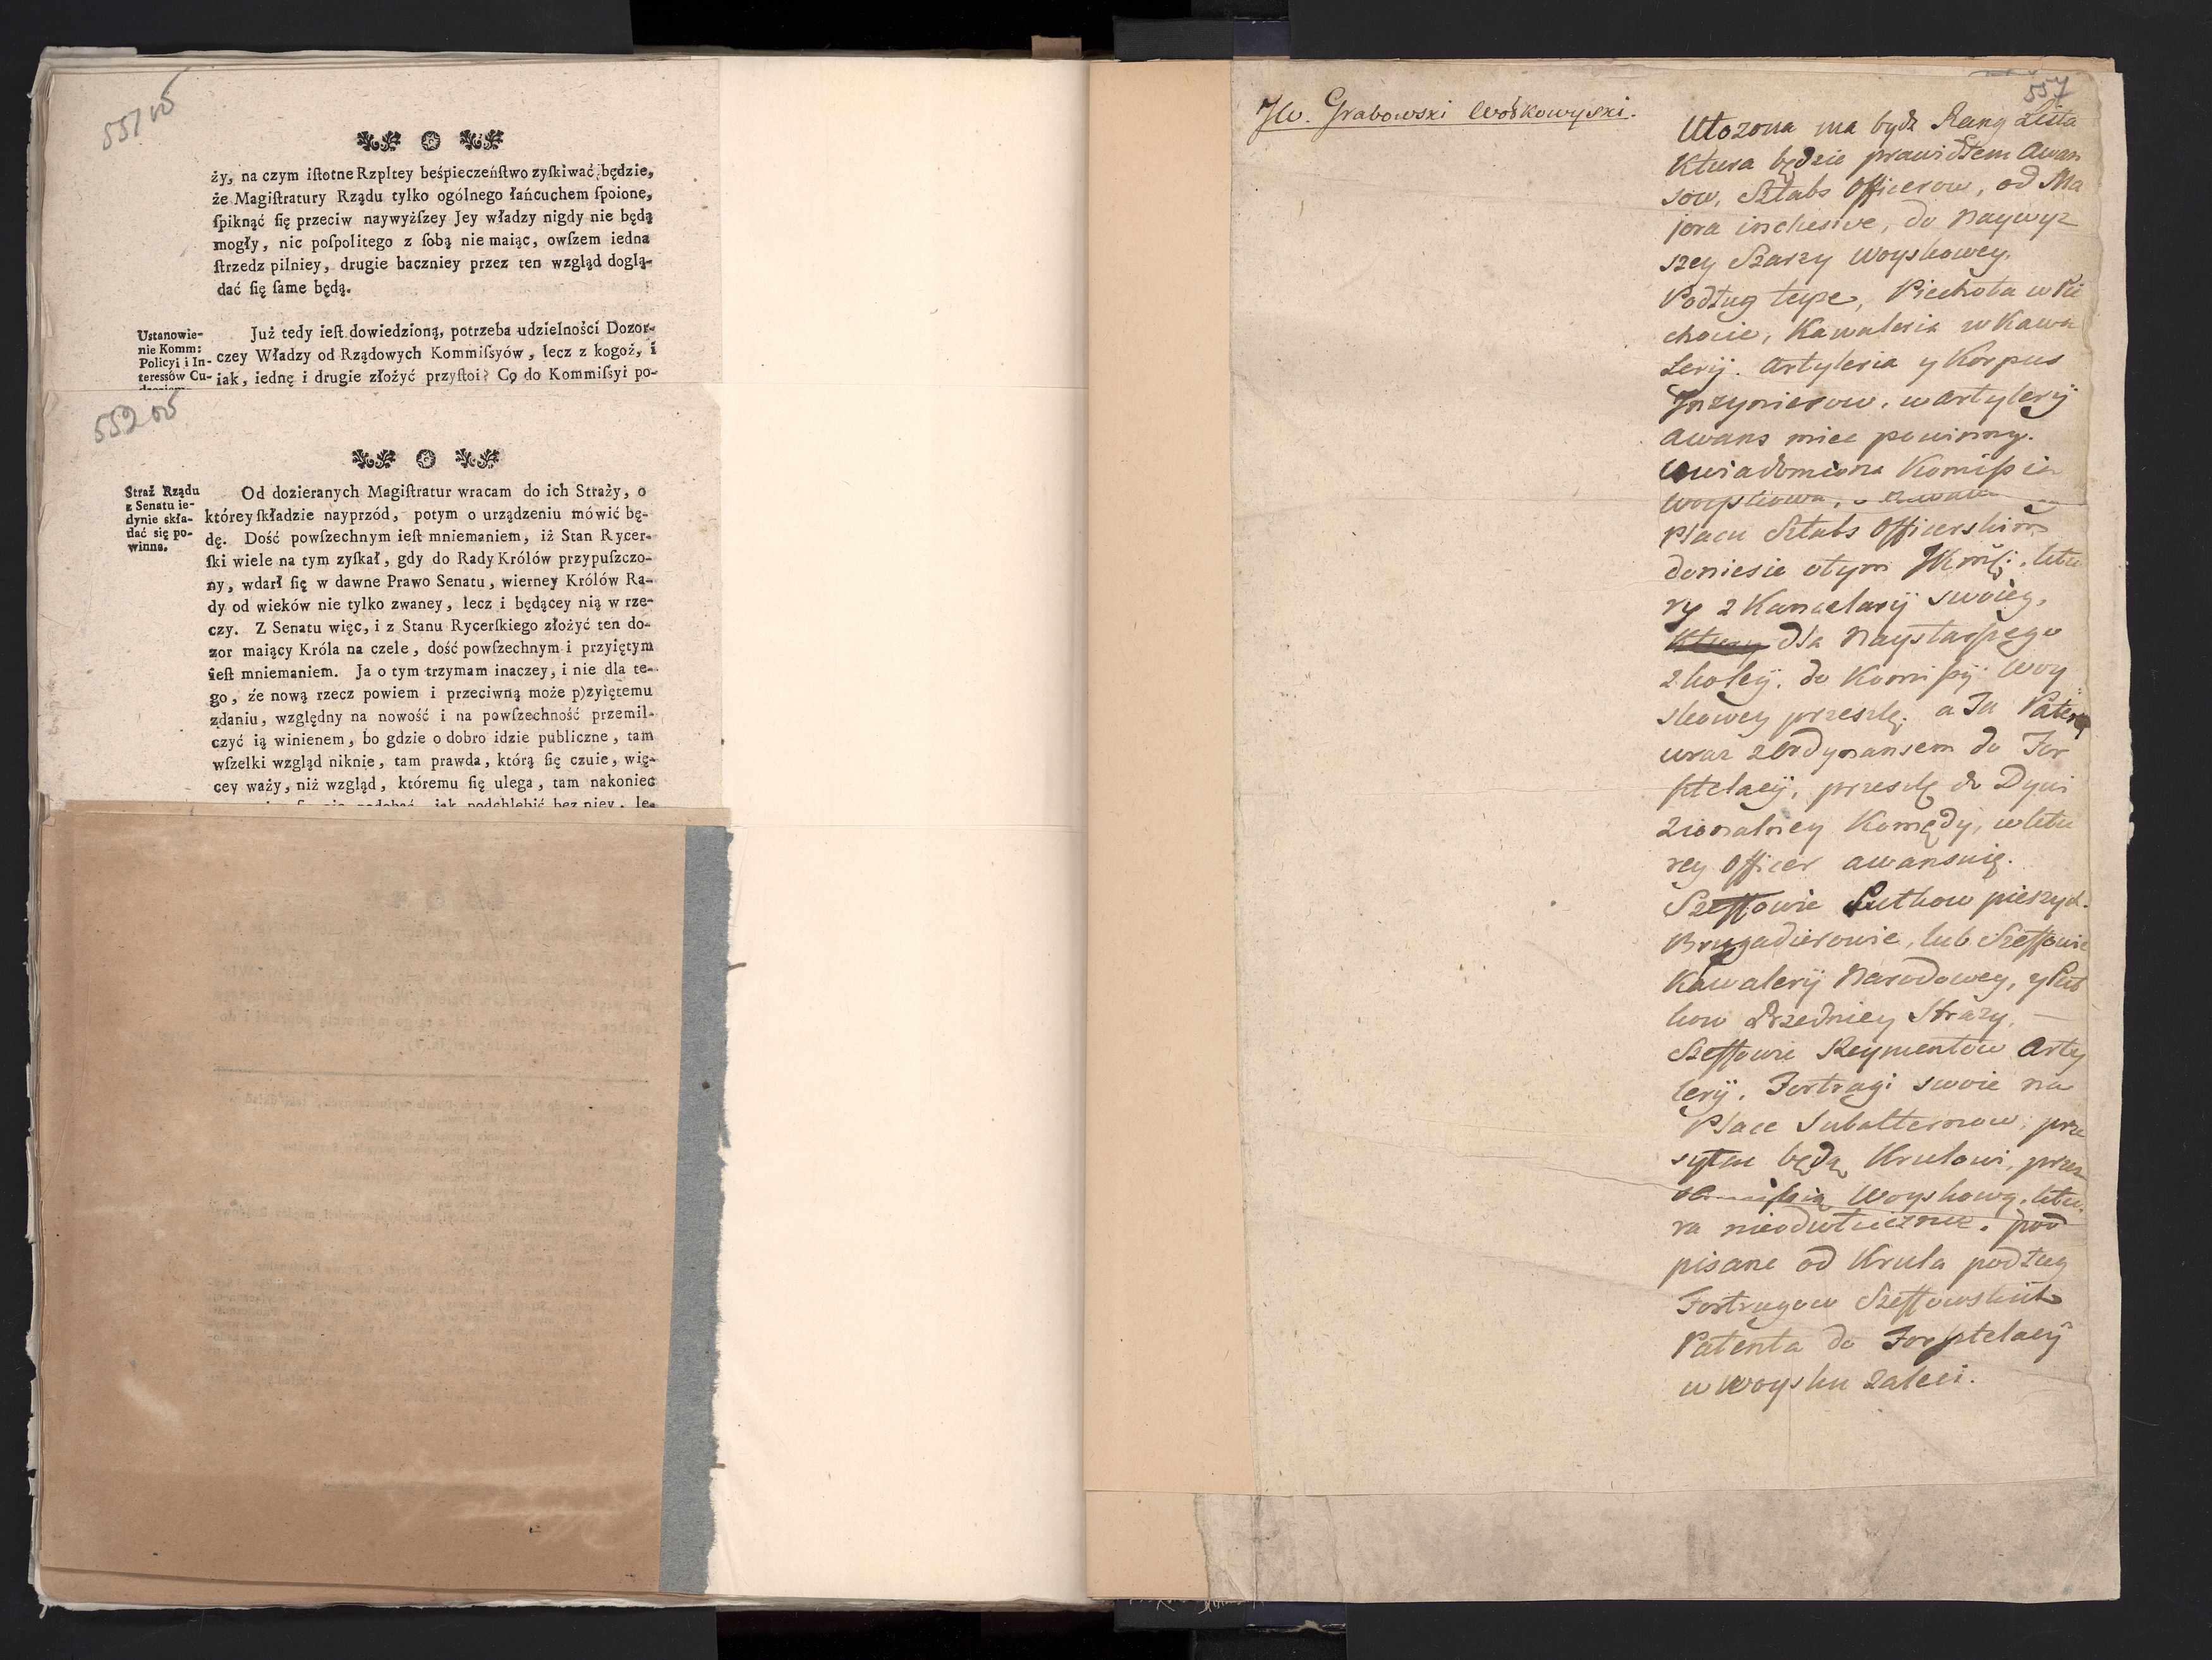 551 vs
ży, na czym iſtotne Rzpltey beśpieczeńſtwo zyſkiwać będzie,
że Magiſtratury Rządu tylko ogólnego łańcuchem ſpoione,
ſpiknąć ſię przeciw naywyżſzey Jey władzy nigdy nie będą
mogły, nic poſpolitego z ſobą nie maiąc, owſzem iedna
ſtrzedz pilniey, drugie baczniey przez ten wzgląd doglą-
dać ſię ſame będą.
Ustanowie-
nie Komm:
Policyi i In-
teressów Cu-
Już tedy ieſt dowiedzioną, potrzeba udzielności Dozor-
czey Władzy od Rządowych Kommiſsyów, lecz z kogoż, i
iak, iednę i drugie złożyć przyſtoi? Co do Kommiſsyi po-
552 vs
Straż Rządu
z Senatu ie-
dynie skła-
dać się po-
winna.
Od dozieranych Magiſtratur wracam do ich Straży, o
którey ſkładzie nayprzód, potym o urządzeniu mówić bę-
dę. Dość powſzechnym ieſt mniemaniem, iż Stan Rycer-
ſki wiele na tym zyſkał, gdy do Rady Królów przypuſzczo-
ny, wdarł ſię w dawne Prawo Senatu, wierney Królów Ra-
dy od wieków nie tylko zwaney, lecz i będącey nią w rze-
czy. Z Senatu więc, i z Stanu Rycerſkiego złożyć ten do-
zor maiący Króla na czele, dość powſzechnym i przyiętym
ieſt mniemaniem. Ja o tym trzymam inaczey, i nie dla te-
go, że nową rzecz powiem i przeciwną może p)zyiętemu
zdaniu, względny na nowość i na powſzechność przemil-
czyć ią winienem, bo gdzie o dobro idzie publiczne, tam
wſzelki wzgląd niknie, tam prawda, którą ſię czuie, wię-
cey waży, niż wzgląd, któremu ſię ulega, tam nakoniec
podobać, jak podchlebić bez niey, le-
557
JW. Grabowski Wołkowyski.
Ułozona ma bydz Rang Lista
Ktura będzie prawidłem Awan
sow, Sztabs Officerow, od Ma
jora inclusive, do naywyz
szey Szarzy Woyskowey.
Podług teyze, Piechota w Pie
chocie, Kawaleria w Kawa
Lerij. Artyleria y Korpus
Inzynierow, w Artylerij
awans miec powinny.
Uwiadomiona Komißia
Woyskowa, o
Placu Sztabs Officerskim
doniesie otym JKmści, ktu
ry z Kancelarij swoiey,
dla Naystarßego
z koleÿ, do Komißÿ Woy
skowey przeszlę, a Ta Patent
wraz z Ordynansem do For
sztelacÿ, przeszlę do Dywi
zionalney Komędy, w ktu
rey Officer awansuię.
Szeffowie Pułkow pieszych.
Brygadierowie, lub Szeffowie
Kawalerÿ Narodowey, y Puł
kow Przedniey Strazy,
Szeffowie Reymentow Arty
lerÿ. Fortragi swoie na
Place Subalternow, prze
syłac będą Krulowi, przez
Komißią Woyskową, ktu
ra nieodwłucznie, pod
pisane od Krula podług
Fortragow Szeffowskich
Patenta do Forsztelacÿ
w Woysku zaleci.